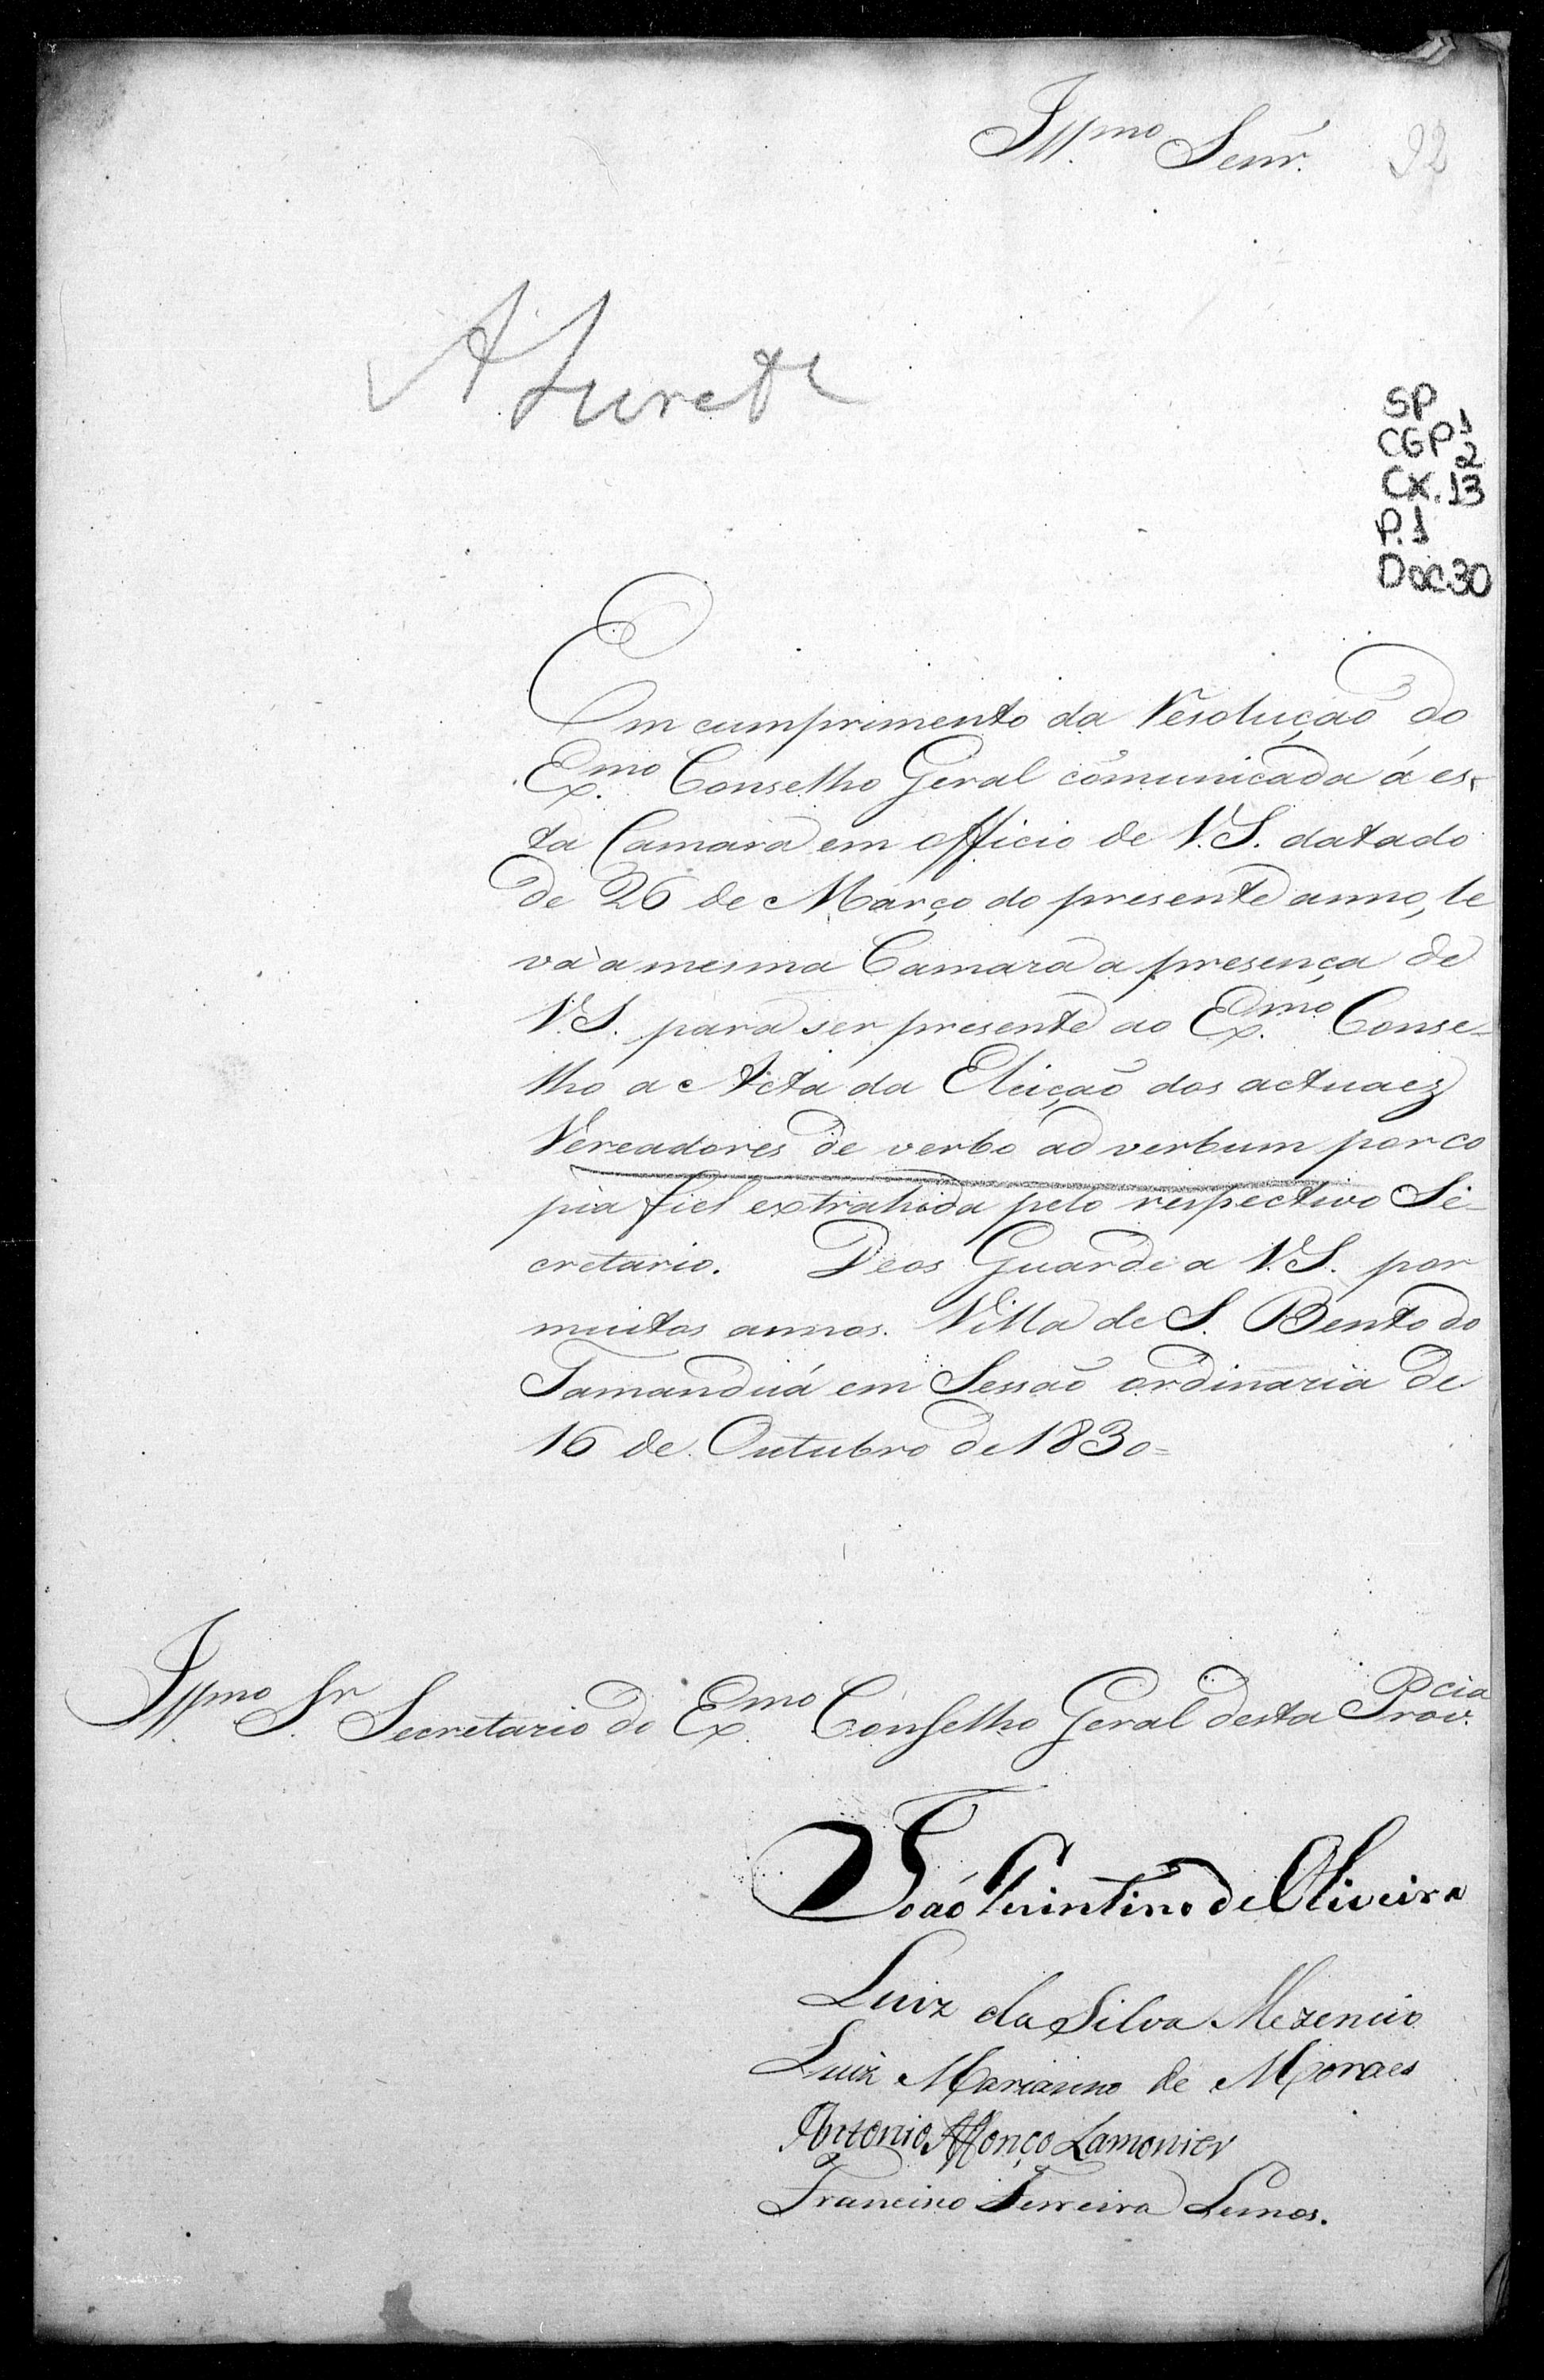 Illmo Senr. 92
SP
CGP 1
2
CX. 13
P. 1
Doc 30
Em cumprimento da Resolução do
Exmo. Conselho Geral comunicada á es-
ta Camara em officio de V.S. datado
de 26 de Março do presente anno, le
va a mesma Camara a presença de
V.S. para ser presente ao Exmo. Conse-
lho a Acta da Eleição dos actuaez
Vereadores de verbo ad verbum por co
pia fiel extrahida pelo respectivo Se-
cretario. Deos Guarde a V.S. por
muitos annos. Villa de S. Bento do
Tamanduá em Sessão ordinaria de
16 de Outubro de 1830=
Illmo Sr. Secretario do Exmo. Conselho Geral desta Provcia.
João Quintino de Oliveira
Luiz da Silva Mezencio
Luiz Marianno de Moraes
Antonio Affonço Lamonier
Francisco Ferreira Lemos.